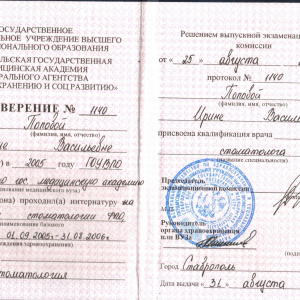 ГОСУДАРСТВЕННОЕ
НОЕ УЧРЕЖДЕНИЕ ВЫСШЕГО
ИОНАЛЬНОГО ОБРАЗОВАНИЯ
ЛЬСКАЯ ГОСУДАРСТВЕННАЯ
ИЦИНСКАЯ АКАДЕМИЯ
РАЛЬНОГО АГЕНТСТВА
ОХРАНЕНИЮ И СОЦ РАЗВИТИЮ»
ВЕРЕНИЕ № 1140
Поповой
(фамилия, имя, отчество)
не Васильевне
) в 2005 году ГОУВПО
гос. медицинскую академию
проходил(а) интернатуру на
стоматологии ФПО
01.09.2005г.-31.08.2006г.
здравоохранения)
томатология
Решением выпускной экзаменационной
комиссии
от «25» августа
протокол № 1140
Поповой
(фамилия, имя, отчество)
Ирине Васил
присвоена квалификация врача
стоматолога
(название специальности)
Председатель
экзаменационной комиссии
Руководитель
органа здравоохранения
или ВУЗа
Город Ставрополь
Дата выдачи «31» августа